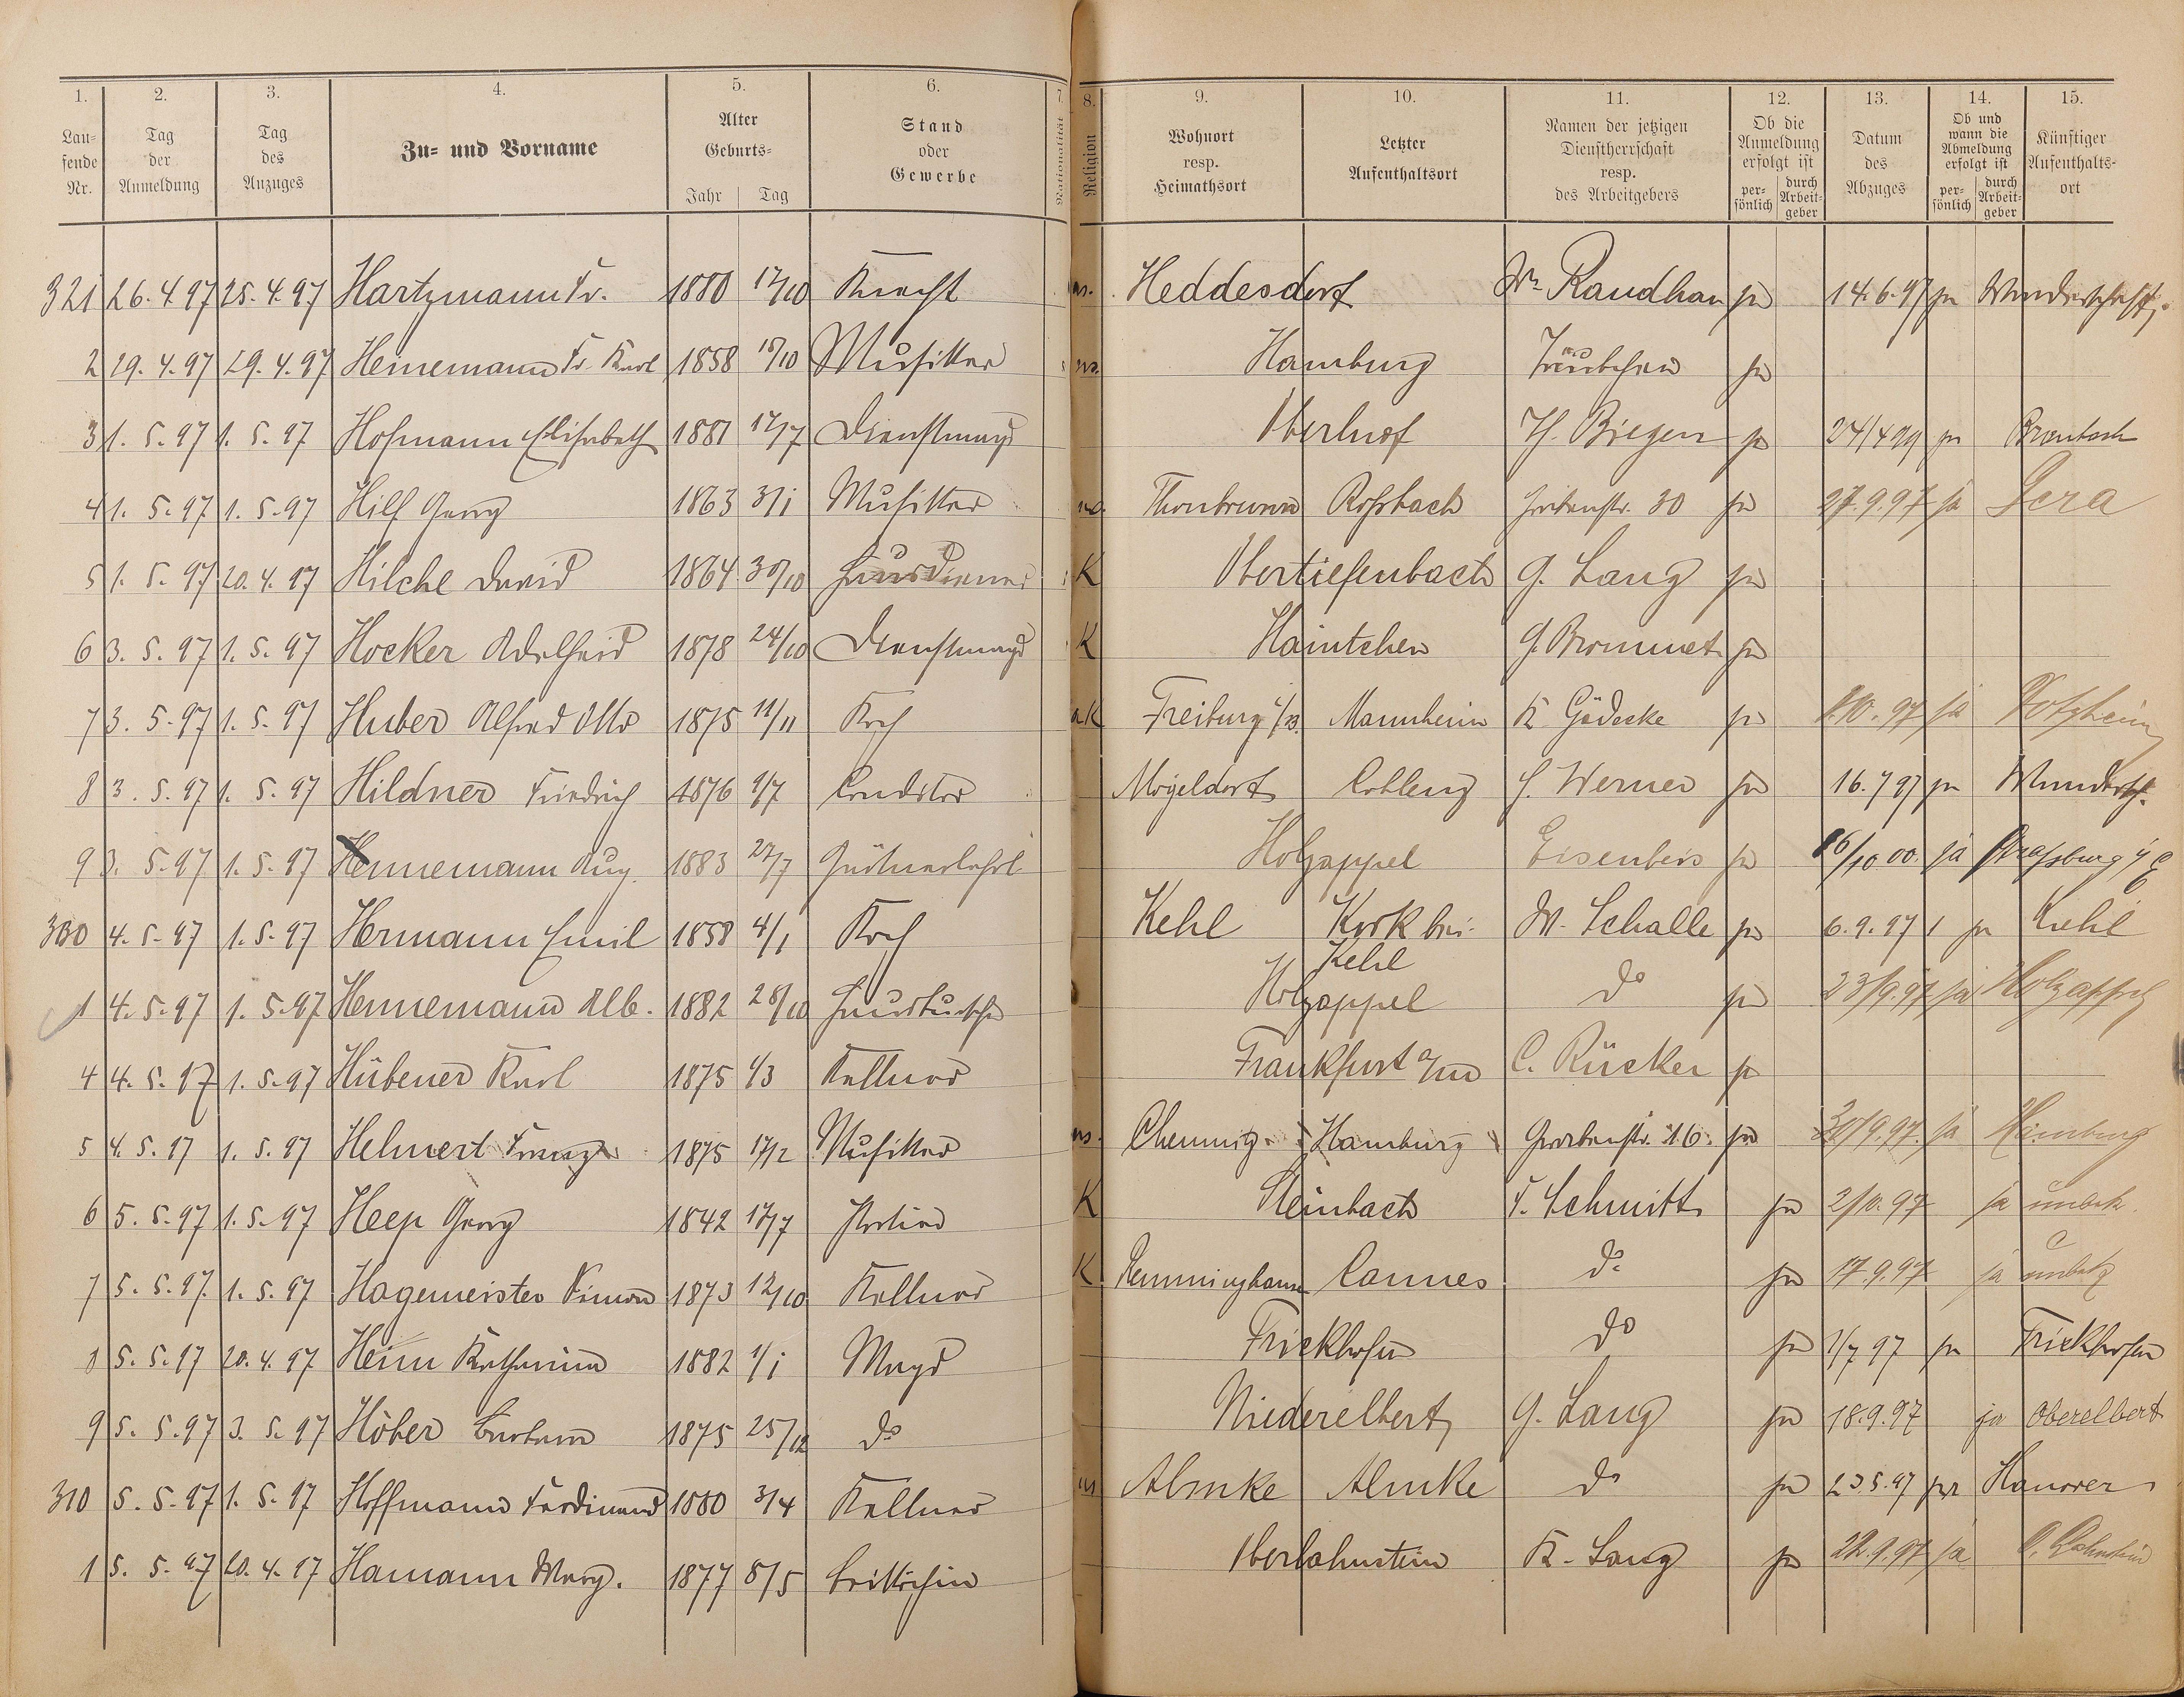 1. 2. 3. 4. 5. 6. 7. 8. 9. 10. 11. 12. 13. 14. 15.
Lau-fende Nr. Tag der Anmeldung Tag des Anzuges Zu- und Vorname Alter Geburts- Jahr Tag Stand oder Gewerbe Nationalität Religion Wohnort resp. Heimathsort Letzter Aufenthaltsort Namen der jetzigen Dienstherrschaft resp. des Arbeitgebers Ob die Anmeldung erfolgt ist per-sönlich durch Arbeit-geber Datum des Abzuges Ob und wann die Abmeldung erfolgt ist per-sönlich durch Arbeit-geber Künftiger Aufenthalts-ort
321 26.4.97 25.4.97 Hartzmann Fr. 1880 17/10 Knecht Heddesdorf Wr. Raudhan ja 14.6.97 ja Wanderschaft.
2 29.4.97 29.4.97 Heinemann Fr. Karl 1858 18/10 Musiker Hamburg Träubchen ja
3 1.5.97 1.5.97 Hofmann Elisabeth 1881 17/7 Dienstmagd Oberhof Th. Biegen ja 24/4 99 ja Braubach
4 1.5.97 1.5.97 Hilf Georg 1863 31/1 Musiker Thonbrunn Roßbach Grabenstr. 30 ja 27.9.97 ja Gera
5 1.5.97 20.4.97 Hilche David 1864 30/10 Hausdiener K Obertiefenbach G. Lang ja
6 3.5.97 1.5.97 Hocker Adelheid 1878 24/10 Dienstmagd K Haintchen G. Brommet ja
7 3.5.97 1.5.97 Huber Alfred Otto 1875 11/11 Koch aK Freiburg i/B. Mannheim K. Gödecke ja 1.10.97 ja
8 3.5.97 1.5.97 Hildner Friedrich 1876 9/7 Conditor Mögeldorf Coblenz H. Werner ja 16.7 97 ja Wandersch.
9 3.5.97 1.5.97 Hennemann Aug. 1883 27/7 Gärtnerlehrl Holzappel Eisenbeis ja 16/10 00. ja Straßburg i/E
330 4.5.97 1.5.97 Hermann Emil 1858 4/1 Koch Kehl Kork bei Kehl W. Schalle ja 6.9.97 ja Kehl
1 4.5.97 1.5.97 Hennemann Alb. 1882 28/10 Hausbursche Holzappel do ja 23/9.97 ja Holzappel
4 4.5.97 1.5.97 Hübener Karl 1875 1/3 Kellner Frankfurt a/M C. Rücker ja
5 4.5.97 1.5.97 Helmert Franz 1875 17/12 Musiker Chemnitz Hamburg Grabenstr. 16. ja 30/9.97. ja Hamburg
6 5.5.97 1.5.97 Heep Georg 1842 17/7 Portier K Steinbach F. Schmitt ja 2/10.97 ja unbek.
7 5.5.97. 1.5.97 Hagemeister Simon 1873 12/10 Kellner K Cannes do ja 17.9.97 ja unbek
8 5.5.97 20.4.97 Heim Katharina 1882 1/1 Magd Frickhofen do ja 1/7 97 ja Frickhofen
9 5.5.97 3.5.97 Höber Barbara 1875 25/12 do Niederelbert G. Lang ja 18.9.97 ja Oberelbert
310 5.5.97 1.5.97 Hoffmann Ferdinand 1880 3/4 Kellner Almke Almke do ja 23.5.97 ja Hanover
1 5.5.97 20.4.97 Hamann Marg. 1877 8/5 Oberlahnstein K. Lang ja 22.9.97 ja O. Lahnstein